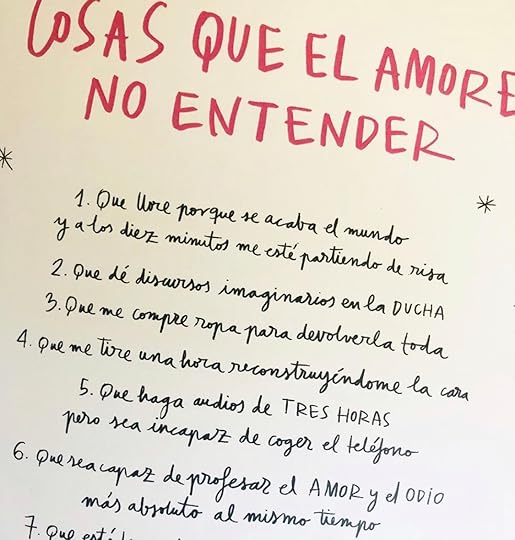 COSAS QUE EL AMORE
NO ENTENDER
1. Que llore porque se acaba el mundo
y a los diez minutos me esté partiendo de risa
2. Que dé discursos imaginarios en la DUCHA
3. Que me compre ropa para devolverla toda
4. Que me tire una hora reconstruyéndome la cara
5. Que haga audios de TRES HORAS
pero sea incapaz de coger el teléfono
6. Que sea capaz de profesar el AMOR y el ODIO
más absoluto al mismo tiempo
7. Que